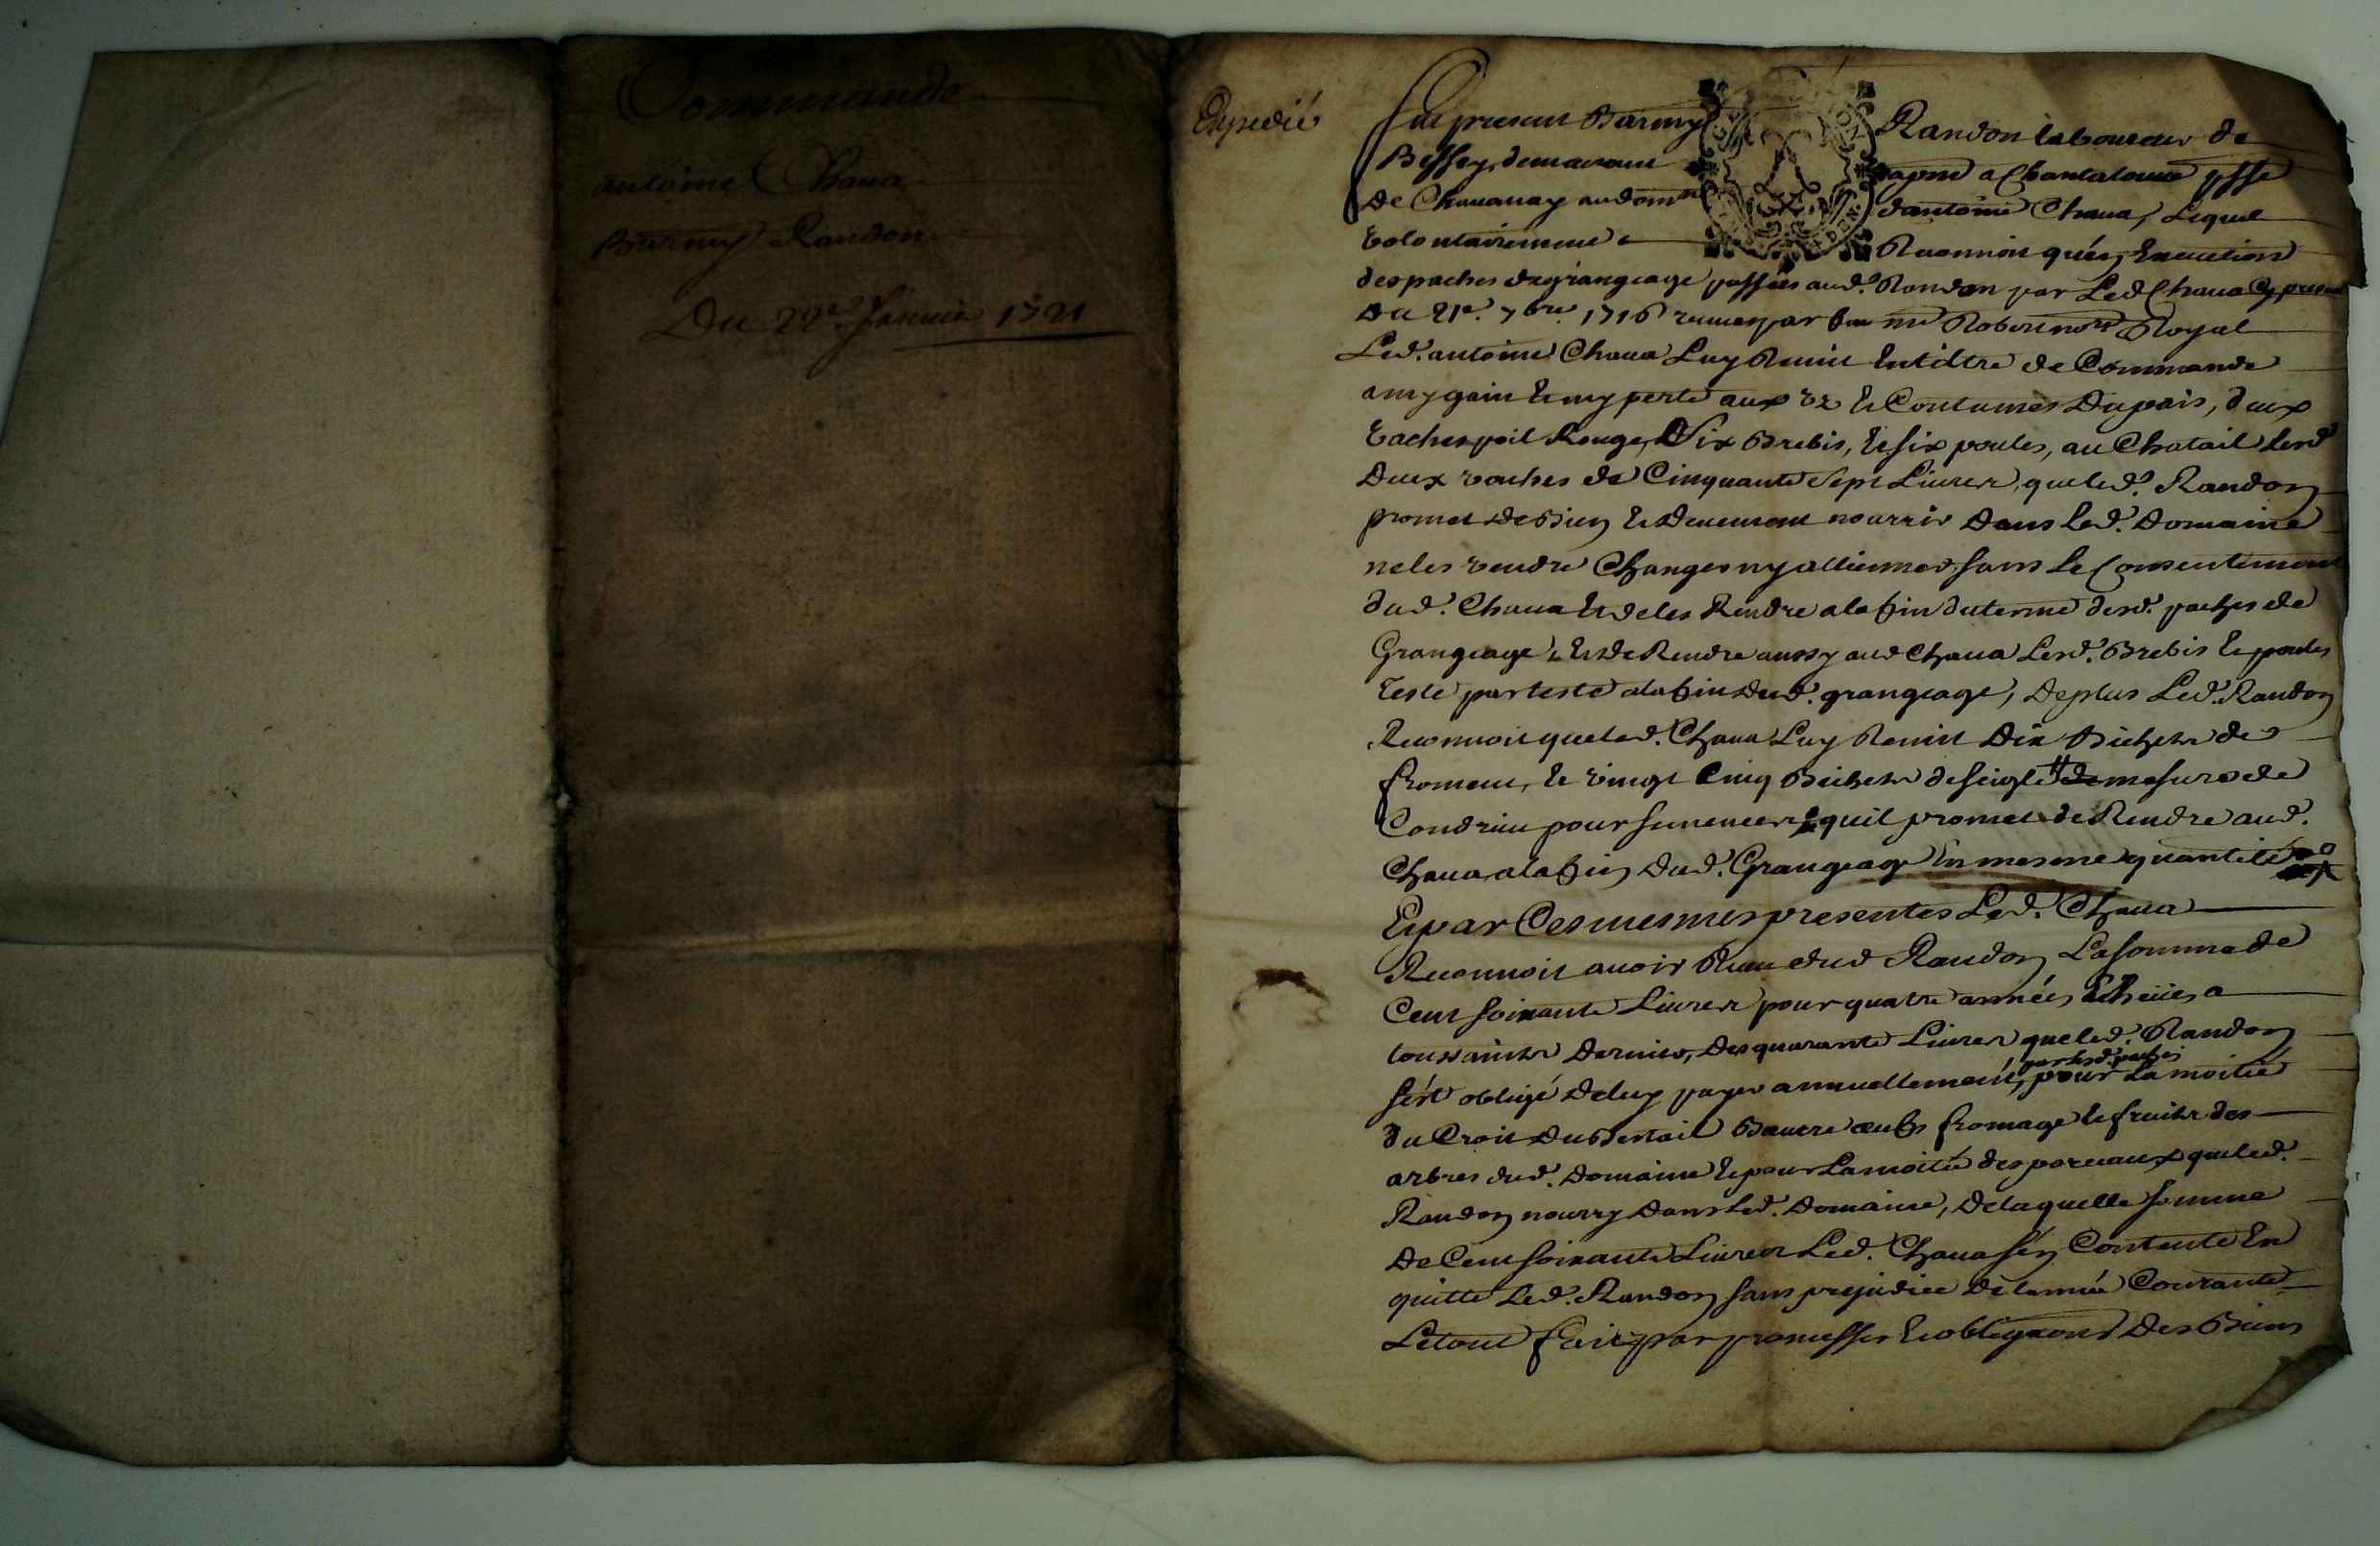 Commande
antoine Chaua
Barmy Randon
Du 22e Januier 1721
Expedié
fut present Barmy Randon laboureur de
Bessey, demeurant apnt a Chantalouue psse
de Chauanay au domne dantoine Chaua, Lequel
volontairement Reconnoit qu'en Execution
des paches de grangeage passées aud. Randon par Led Chaua Cy present
Du 21e. 7bre. 1716 receues par feu me Robert nore Royal
Led. antoine Chaua Luy Remit En tiltre de Commande
a my gain & my perte aux vz & Coutumes Du païs, deux
vaches poil Rouge, Six Brebis, & six poules, au Chatail desd
Deux vaches de Cinquante Sept Liures, que led. Randon
promet de Bien & deuement nourrir Dans led. Domaine
ne les vendre Changer ny alliener sans le Consentement
dud. Chaua & de les Rendre a la fin du terme desd. paches de
Grangeage, & de Rendre aussy aud Chaua Lesd. Brebis & poules
teste par teste a la fin dud. grangeage, De plus Led. Randon
Reconnoit que led. Chaua Luy Remit Dix Bichets de
froment, & vingt Cinq Bichets de seigle mesure de
Condrieu pour semences, quil promet de Rendre aud.
Chaua a la fin Dud. Grangeage En mesme quantité
Et par Ces mesmes presentes Led. Chaua
Reconnoit auoir Receu dud Randon La somme de
Cent soixante Liures pour quatre années Echeües a
toussaints Dernier, des quarante Liures que led. Randon
par lesd. paches
s'est obligé De luy payer annuellement, pour La moitié
du Croit du Bestail Beurre œufs fromage & fruits des
arbres dud. Domaine & pour La moitié des porceaux que led.
Randon nourry Dans Led. Domaine, De laquelle somme
De Cent soixante Liures Led. Chaua s'en Contente En
quitte Led. Randon sans prejudice De l'année Courante
Le tout fait par promesses & obligaons Des Biens